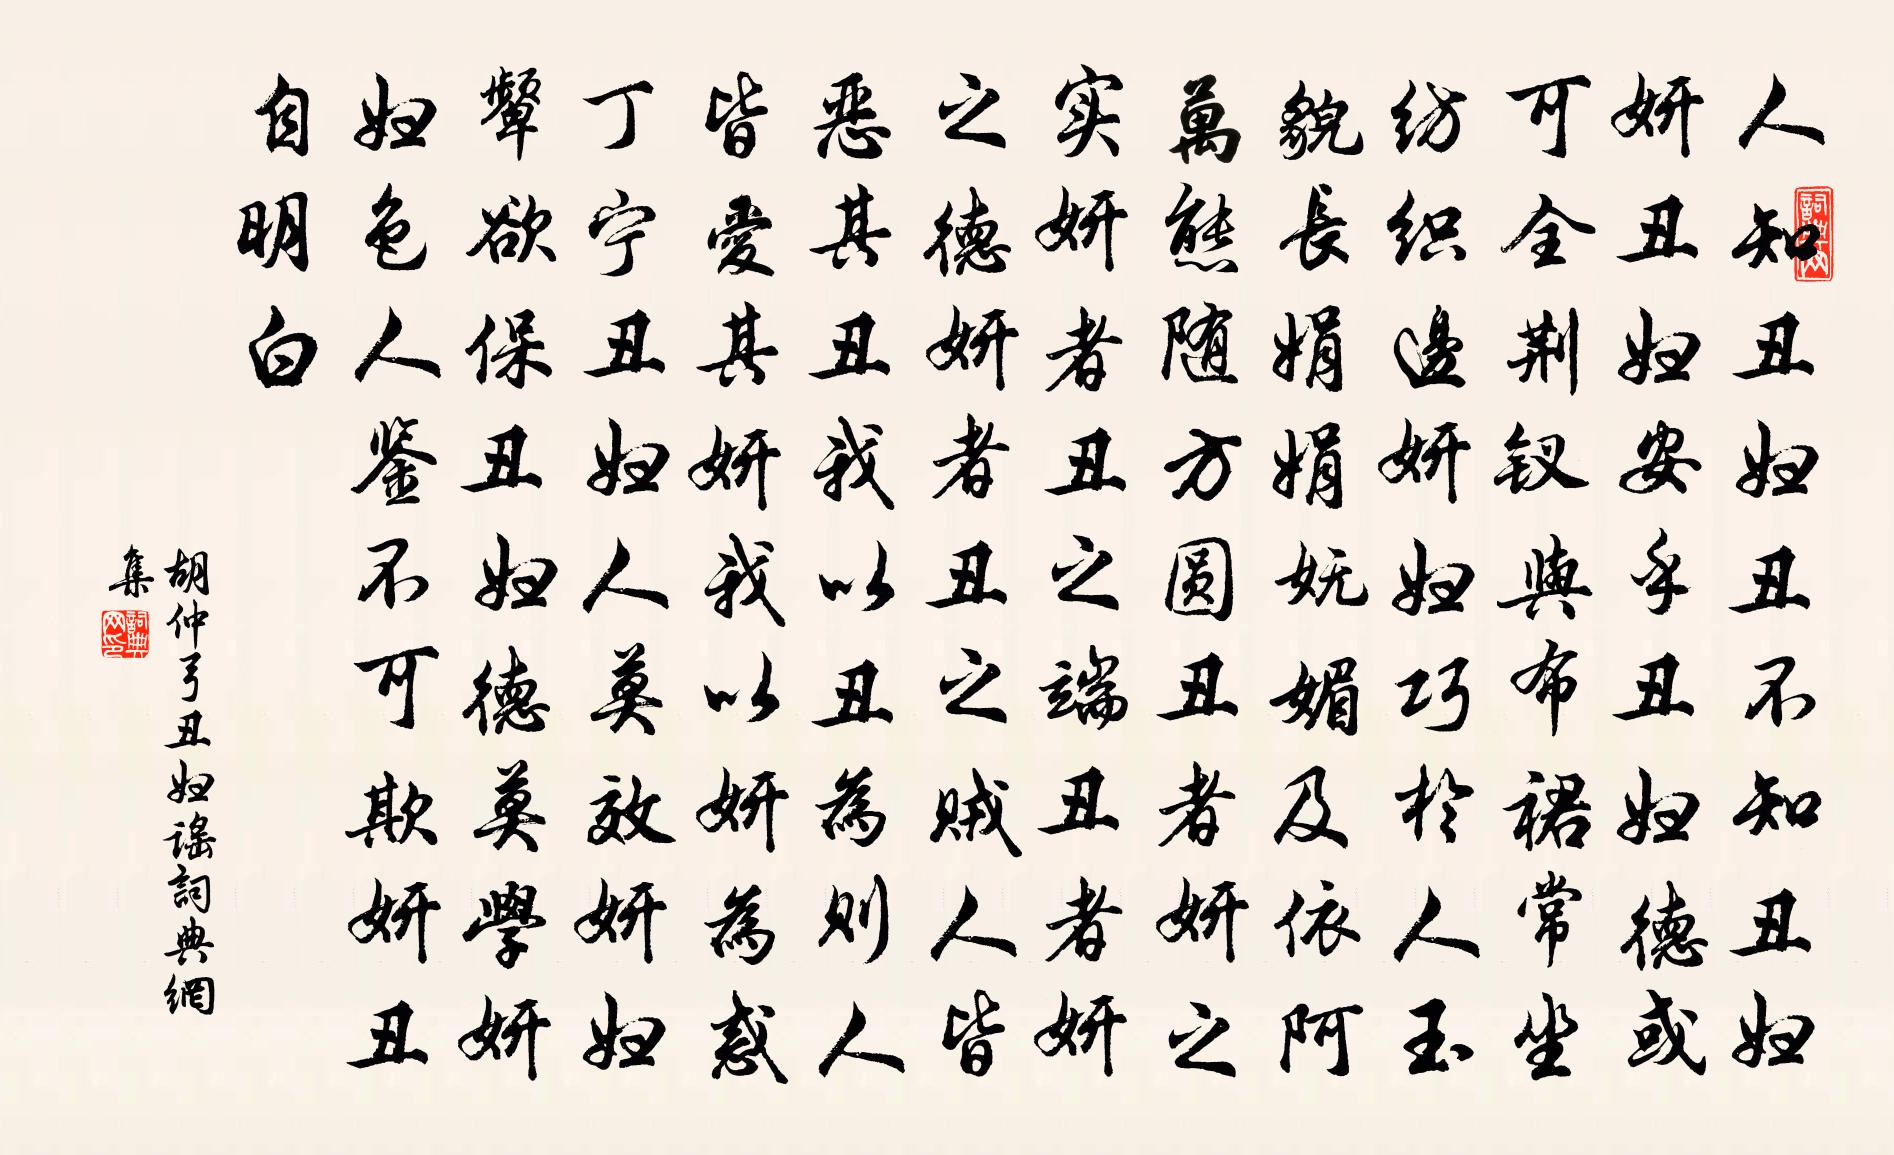 人知丑妇丑不知丑妇
妍丑妇安乎丑妇德或
可全荆钗與布裙常坐
纺织邊妍妇巧於人玉
貌長娟娟妩媚及依阿
萬態随方圆丑者妍之
实妍者丑之端丑者妍
之德妍者丑之贼人皆
恶其丑我以丑為则人
皆愛其妍我以妍為惑
丁宁丑妇人莫效妍妇
颦欲保丑妇德莫學妍
妇色人鉴不可欺妍丑
自明白
胡仲弓丑妇谣詞典網
集
詞典
网印